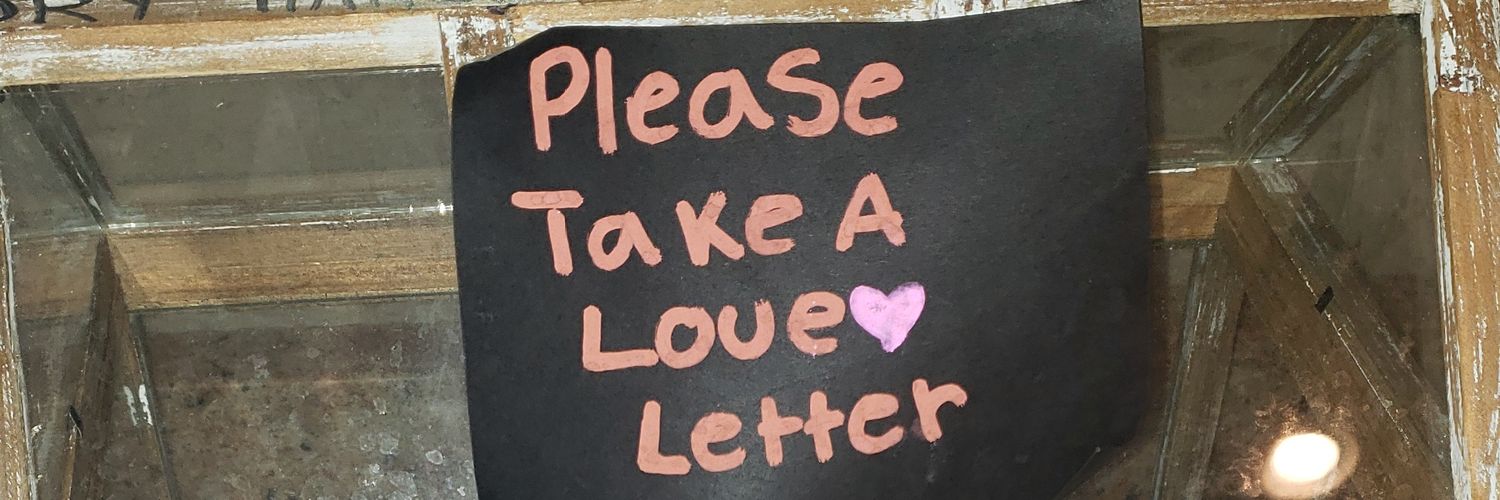 Please
Take A
Love
Letter